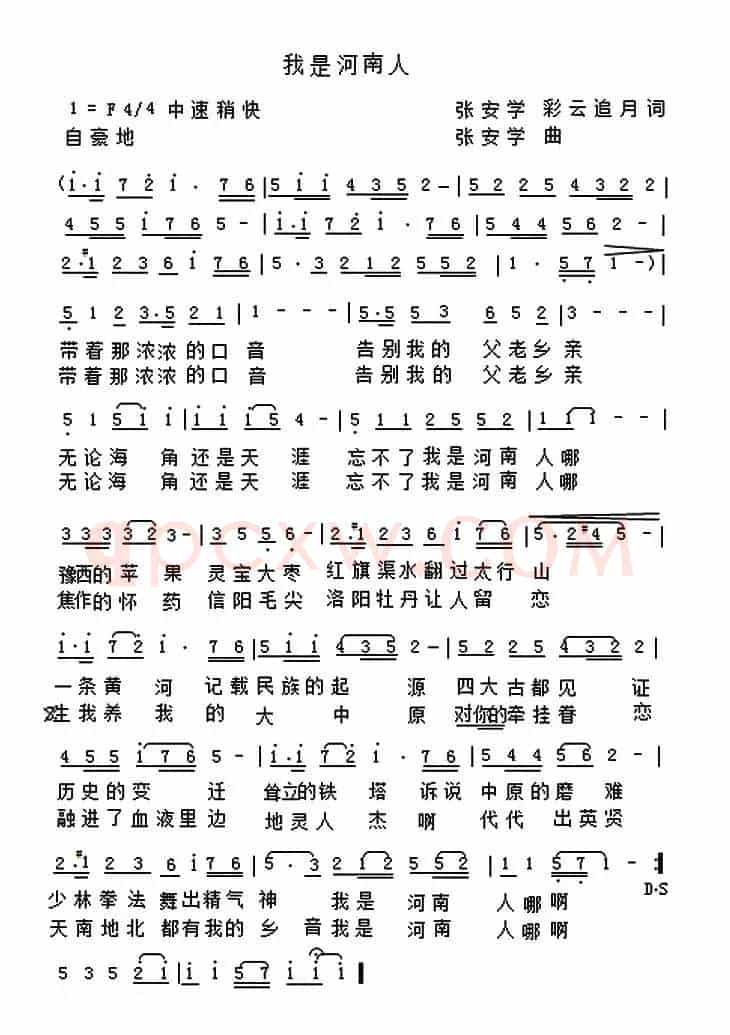 我是河南人
1=F 4/4 中速稍快 张安学 彩云追月词
自豪地 张安学 曲
(i·i 7 2 i · 7 6 | 5 i i 4 3 5 2 - | 5 2 2 5 4 3 2 2 |
4 5 5 i 7 6 5 - | i·i 7 2 i · 7 6 | 5 4 4 5 6 2 - |
2·#1 2 3 6 i 7 6 | 5 · 3 2 1 2 5 5 2 | 1 · 5 7 1 - ) |
5 1 2 3·5 2 1 | 1 - - - | 5·5 5 3 6 5 2 | 3 - - - |
带着那浓浓的口音 告别我的 父老乡亲
带着那浓浓的口音 告别我的 父老乡亲
5 1 5 i | i i i 5 4 - | 5 1 2 5 5 2 | 1 1 1 - - |
无论海 角还是天 涯 忘不了我是河南 人哪
无论海 角还是天 涯 忘不了我是河南 人哪
3 3 3 3 2 3 - | 3 5 5 6 - | 2·#1 2 3 6 i 7 6 | 5·2 #4 5 - |
豫西的苹 果 灵宝大枣 红旗渠水翻过太行 山
焦作的怀 药 信阳毛尖 洛阳牡丹让人留 恋
i·i 7 2 i · 7 6 | 5 i i 4 3 5 2 - | 5 2 2 5 4 3 2 2 |
一条黄 河 记载民族的起 源 四大古都见 证
生我养 我 的 大 中 原 对你的牵挂眷 恋
4 5 5 i 7 6 5 - | i·i 7 2 i · 7 6 | 5 4 4 5 6 2 - |
历史的变 迁 耸立的铁 塔 诉说 中原的磨 难
融进了血液里边 地灵人 杰 啊 代代 出英贤
2·#1 2 3 6 i 7 6 | 5 · 3 2 1 2 5 5 2 | 1 1 5 7 1 - :|
少林拳法 舞出精气 神 我是 河南 人哪啊
D·S
天南地北 都有我的乡 音我是 河南 人哪啊
5 3 5 2 i | i 5 7 i i i |
qpcxw.COM